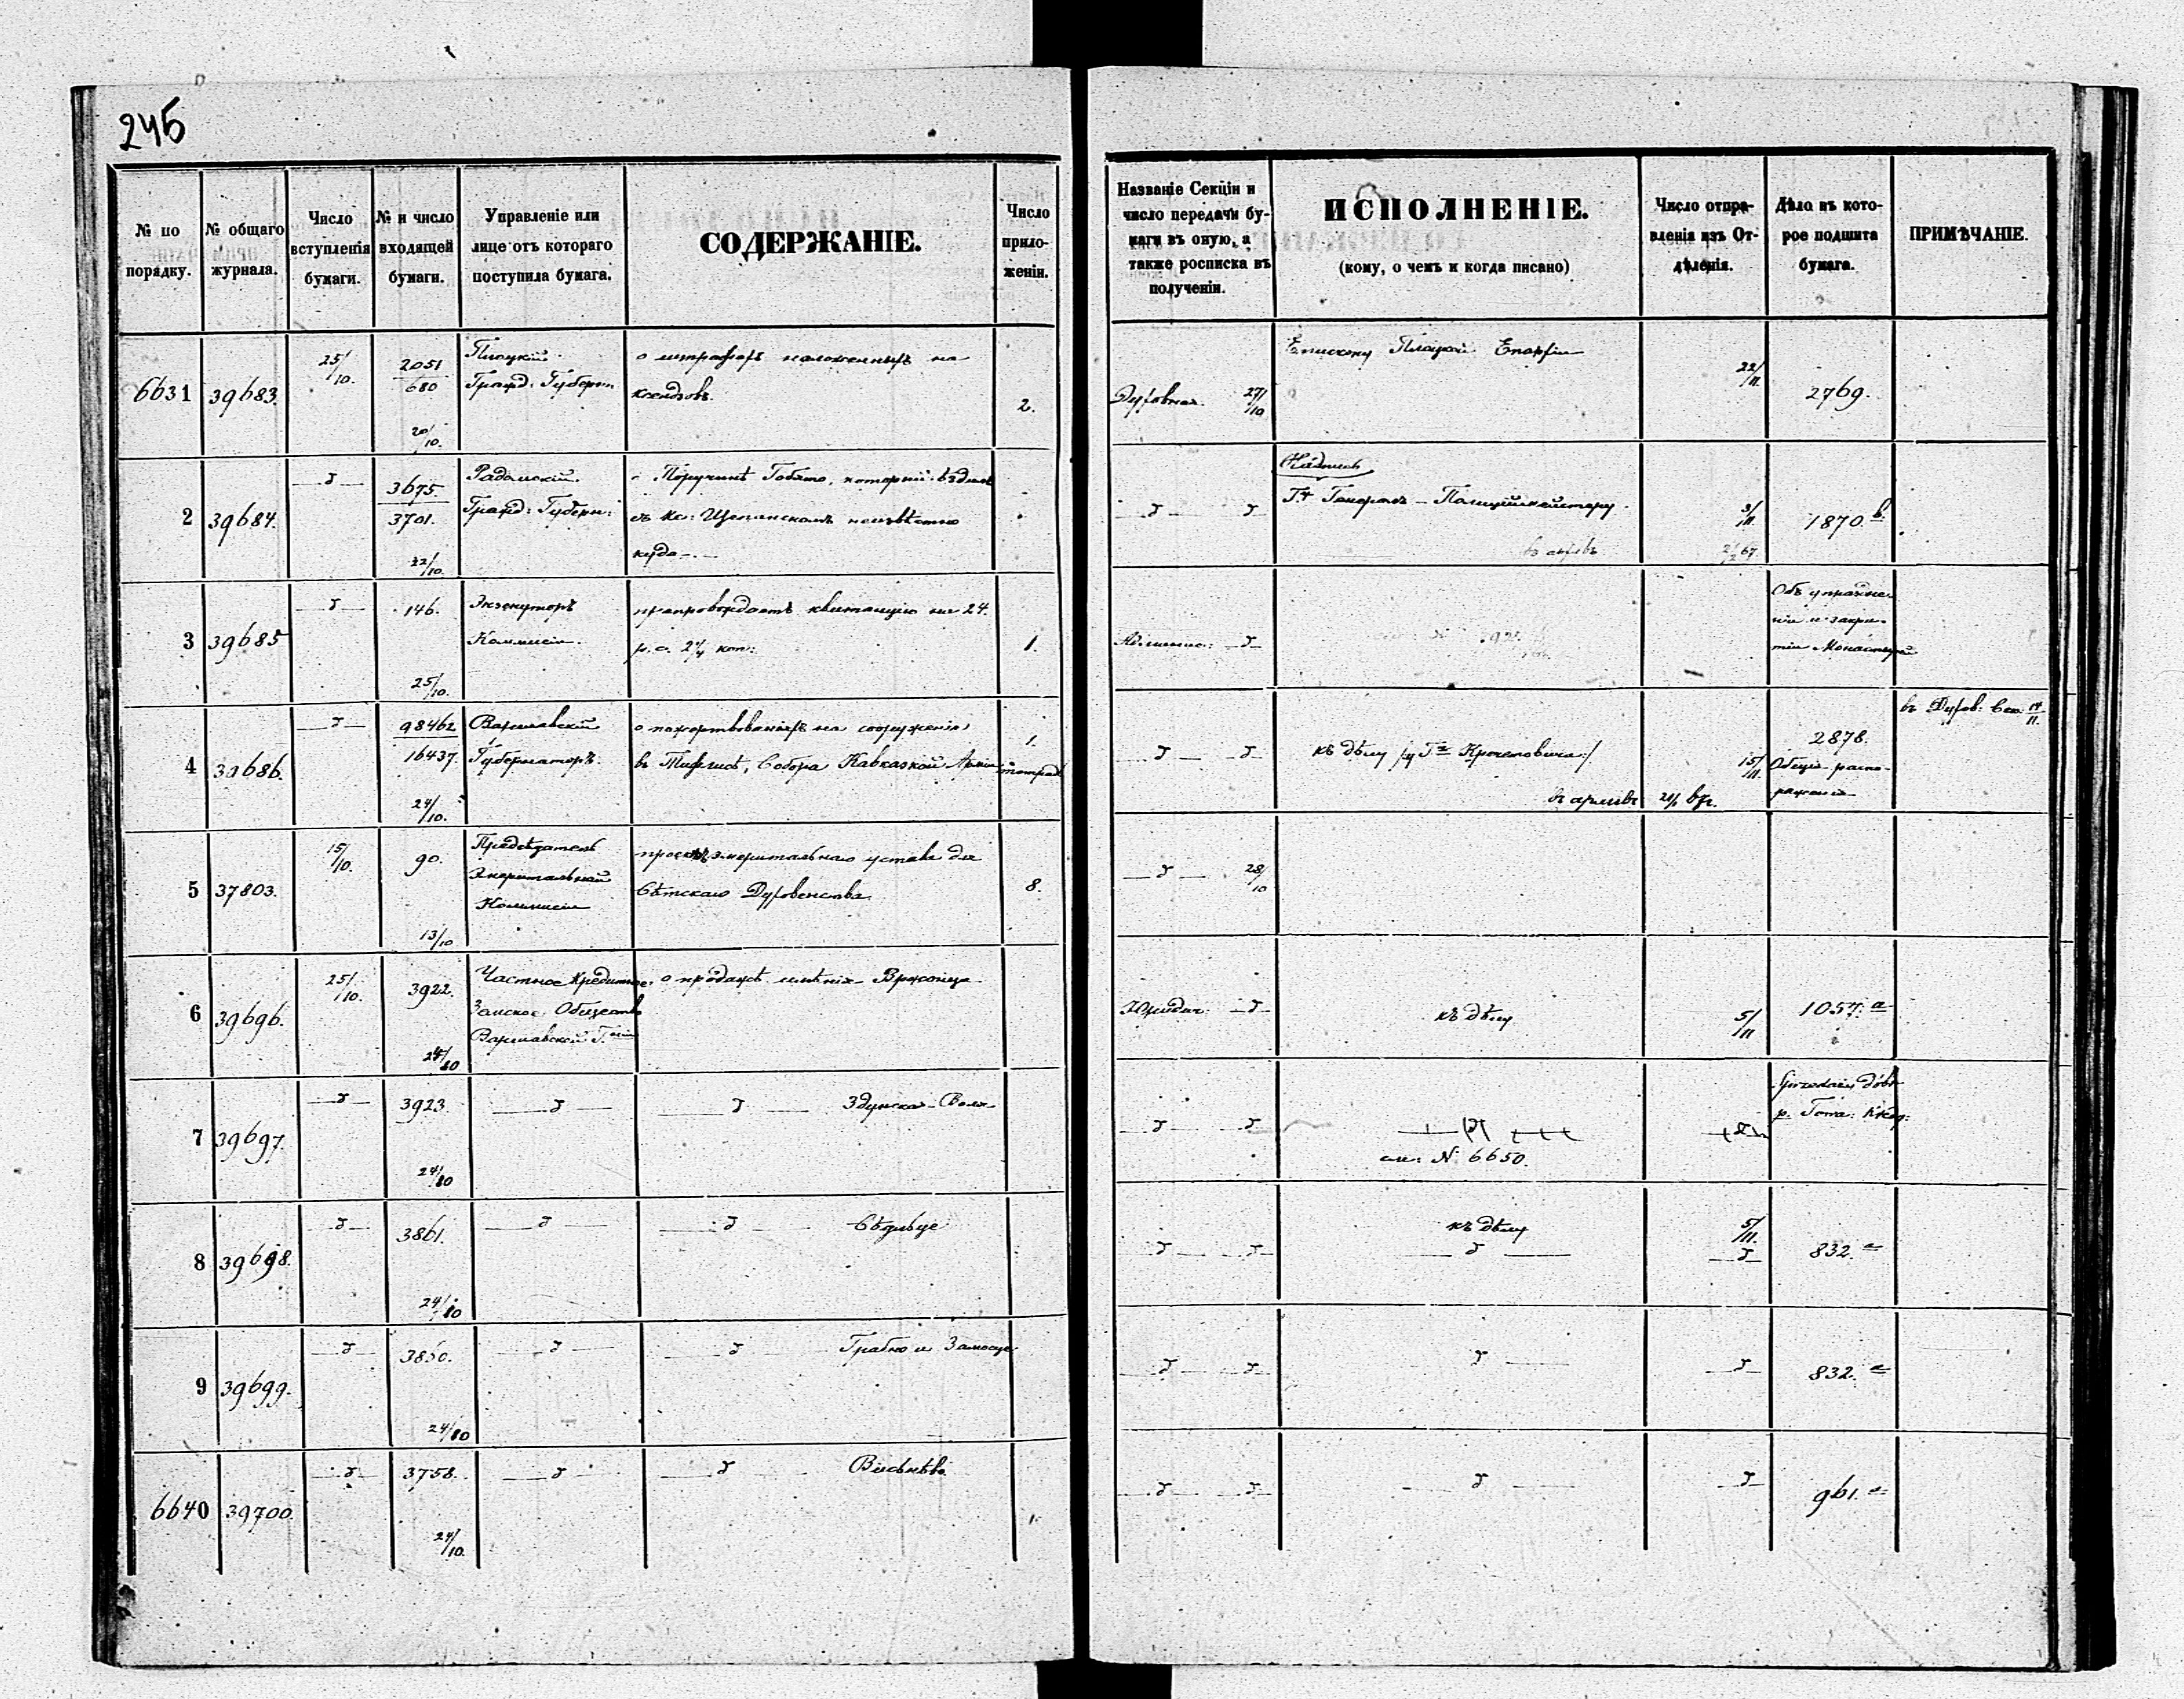 245
№ по порядку.
№ общаго журнала.
Число вступленія бумаги.
№ и число входящей бумаги.
Управленіе или лице отъ котораго поступила бумага.
СОДЕРЖАНІЕ.
Число приложеніи.
Названіе Секціи и число передачи бумаги въ оную, а также росписка въ полученіи.
ИСПОЛНЕНІЕ.
(кому, о чемъ и когда писано)
Число отправленія изъ Отдѣленія.
Дѣло въ которое подшита бумага.
ПРИМѢЧАНІЕ.
6631 39683. 25/10. 2051/680 20/10.
Плоцкій
Гражд: Губерн.
о штрафахъ наложенныхъ на
ксендзовъ.
2.
Духовная. 27/10
Епископу Плоцкой Епархіи
22/11.
2769.
2 39684. 3675/3701. 22/10.
Радомскій
Гражд: Губерн:
неизвѣстно
куда
Надпись
Полицiймейстеру.
въ архивъ
3/11.
1870 b.
3 39685 146. 25/10.
Экзекуторъ
Коммисіи.
препровождаетъ квитанцію на 24.
р. с. 2 1/4 коп:
1.
Объ упраздне
ніи и закры-
тіи Монастырей
4 39686. 98462/16437. 24/10.
Варшавскій
Губернаторъ.
о пожертвованіяхъ на сооруженіе
въ Тифлисѣ, Собора Кавказкой Арміи
1.
къ дѣлу
въ архивъ
15/11.
2878.
Общія распо-
ряженія
въ Духов: Сек: 14/11.
5 37803. 15/10. 90. 13/10
Предсѣдатель
Эмеритальной
Коммисіи
проектъ эмеритальнаго устава для
Свѣтскаго Духовенства
8.
28/10
6 39696. 25/10. 3922. 24/10
Частное Кредитное
Земское Общество
Варшавской Г.
о продажѣ имѣнія
Юридич.
къ дѣлу
5/11
1057. a
7 39697. 3923. 24/10
Здунская-Воля
см: N. 6650.
8 39698. 3861. 24/10
къ дѣлу
5/11.
832. a
9 39699. 3850. 24/10
Грабно и Замосце
832. a
6640 39700. 3758. 24/10.
1.
961. a